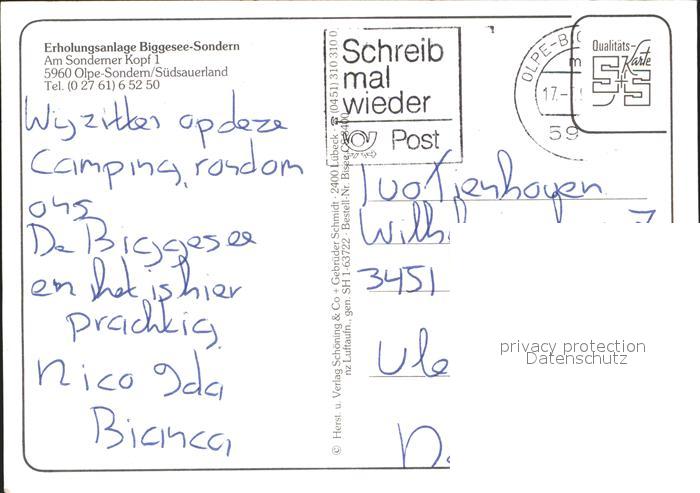 Erholungsanlage Biggesee-Sondern
Am Sonderner Kopf 1
5960 Olpe-Sondern/Südsauerland
Tel. (0 27 61) 6 52 50
Wij zitten op deze
Camping, rondom
ons
De Biggesee
en het is hier
prachtig
Nico Ida
Bianca
© Herst. u. Verlag Schöning & Co + Gebrüder Schmidt · 2400 Lübeck · (0451) 310 310
nz Luftaufn., gen. SH 1-63722 · Bestell-Nr.
Schreib
mal
wieder
Post
OLPE-BIG
17.-
59
Qualitäts-
Karte
S+S
Ivo Tienhoven
Wilh
3451
Vle
N
privacy protection
Datenschutz